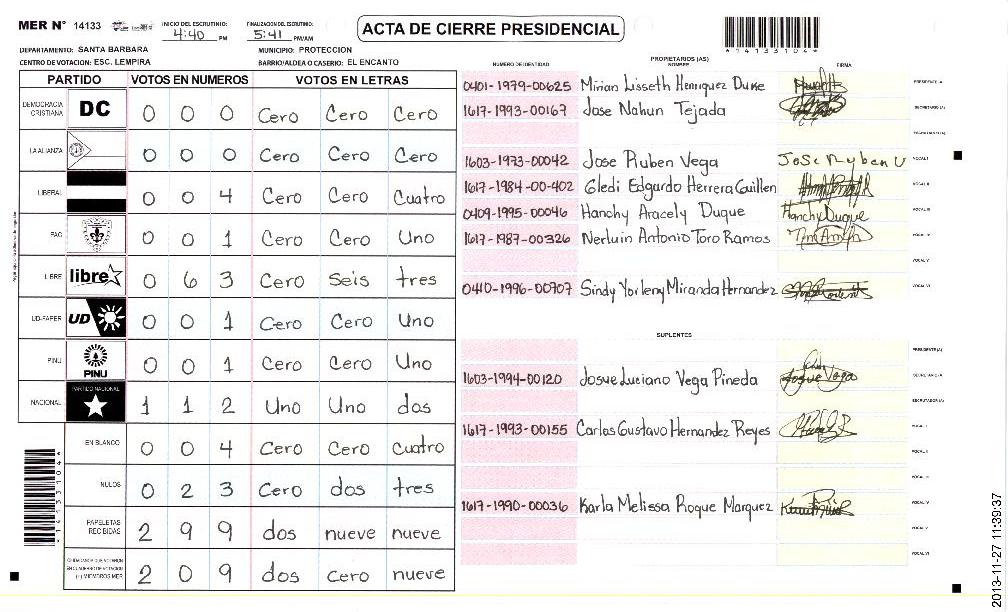 MER N° 14133 INICIO DEL ESCRUTINIO: 4:40 PM FINALIZACION DEL ESCRUTINIO: 5:41 PM/AM ACTA DE CIERRE PRESIDENCIAL *14133104*
DEPARTAMENTO: SANTA BARBARA MUNICIPIO: PROTECCION
CENTRO DE VOTACION: ESC. LEMPIRA BARRIO/ALDEA O CASERIO: EL ENCANTO
PARTIDO VOTOS EN NUMEROS VOTOS EN LETRAS
DEMOCRACIA CRISTIANA DC 0 0 0 Cero Cero Cero
LA ALIANZA 0 0 0 Cero Cero Cero
LIBERAL 0 0 4 Cero Cero Cuatro
PAC 0 0 1 Cero Cero Uno
LIBRE libre 0 6 3 Cero Seis tres
UD-FAPER UD 0 0 1 Cero Cero Uno
PINU PINU 0 0 1 Cero Cero Uno
NACIONAL PARTIDO NACIONAL 1 1 2 Uno Uno dos
EN BLANCO 0 0 4 Cero Cero Cuatro
NULOS 0 2 3 Cero dos tres
PAPELETAS RECIBIDAS 2 9 9 dos nueve nueve
CIUDADANOS QUE VOTARON EN CUADERNO DE VOTACION (+) MIEMBROS MER 2 0 9 dos cero nueve
*14133104*
PROPIETARIOS (AS)
NUMERO DE IDENTIDAD NOMBRE FIRMA
0401-1979-00625 Mirian Lisseth Henriquez Duke PRESIDENTE/A
1617-1993-00167 Jose Nahun Tejada SECRETARIO(A)
ESCRUTADOR(A)
1603-1973-00042 Jose Ruben Vega Jose Ryben V VOCAL I
1617-1984-00-402 Gledi Edgardo Herrera Guillen VOCAL II
0409-1995-00046 Hanchy Aracely Duque Hanchy Duque VOCAL III
1617-1987-00326 Nerluin Antonio Toro Ramos VOCAL IV
VOCAL V
0410-1996-00707 Sindy Yorleny Miranda Hernandez VOCAL VI
SUPLENTES
PRESIDENTE(A)
1603-1994-00120 Josue Luciano Vega Pineda Josue Vega SECRETARIO/A
ESCRUTADOR(A)
1617-1993-00155 Carlos Gustavo Hernandez Reyes VOCAL I
VOCAL II
VOCAL III
1617-1990-00036 Karla Melissa Roque Marquez VOCAL IV
VOCAL V
VOCAL VI
2013-11-27 11:39:37